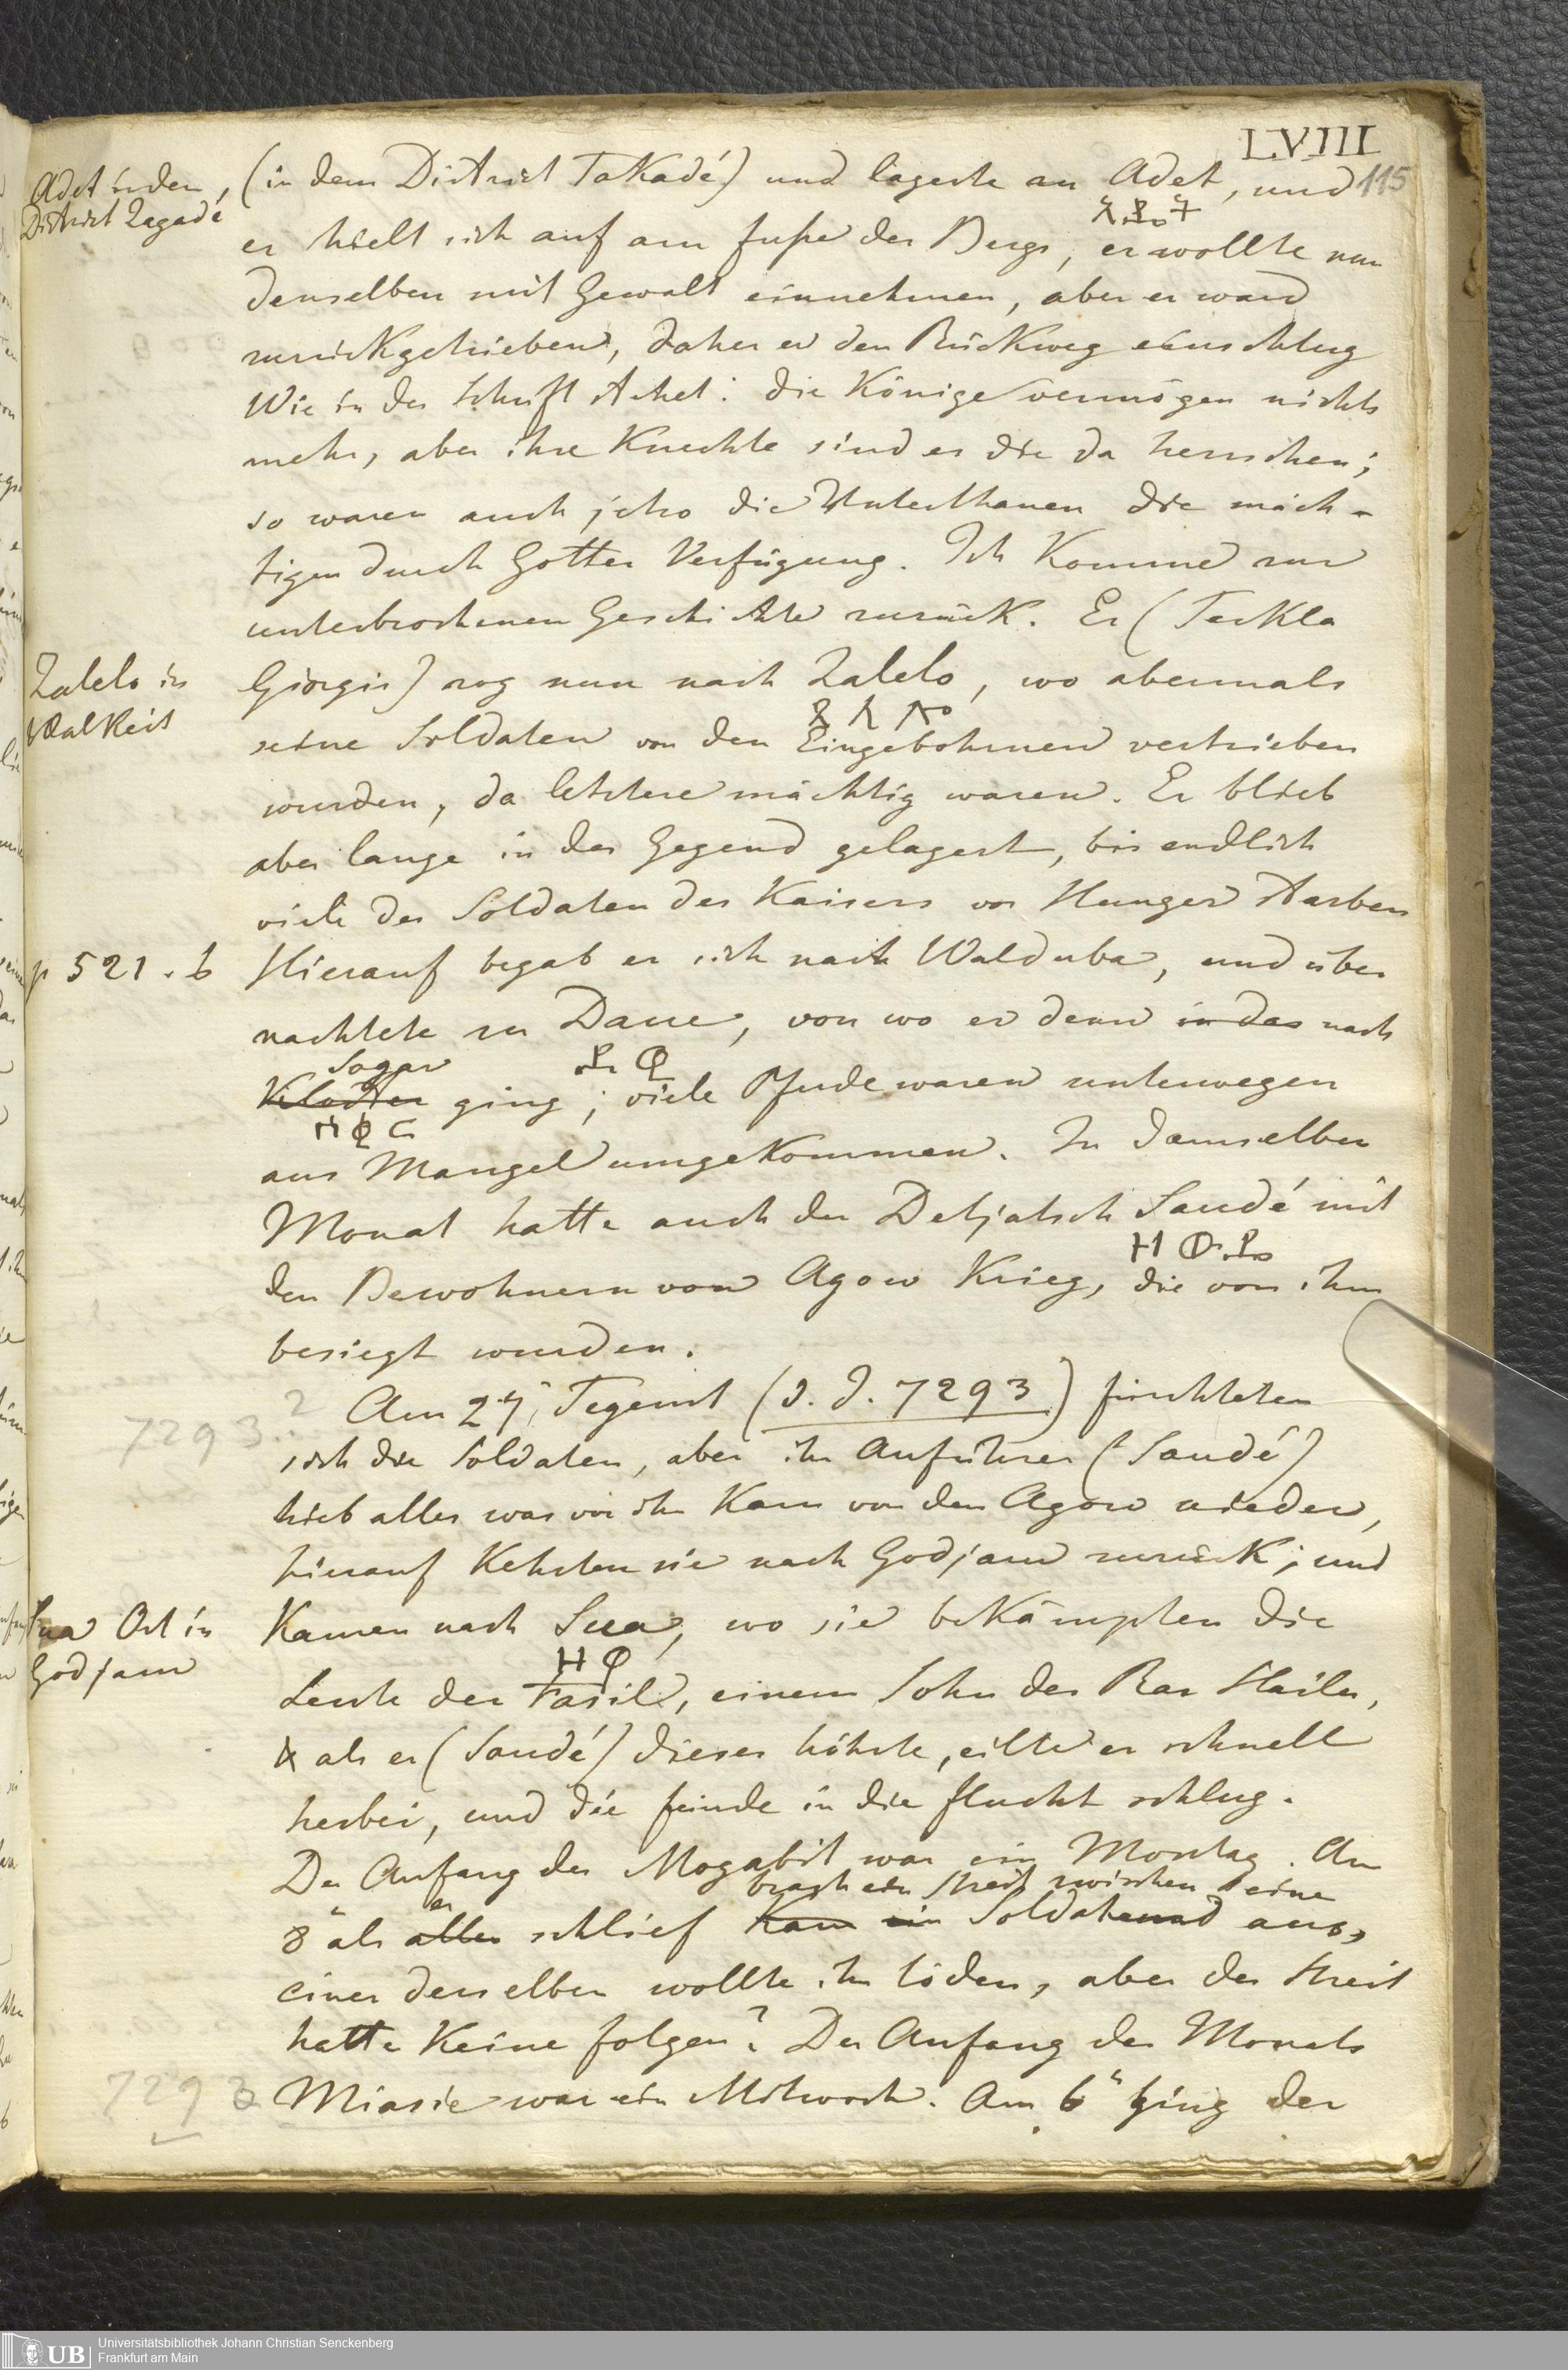 LVIII
115
Adet in dem,
District Zagadé
(in dem District TaKadé) und lagerte an Adet, und
er hielt sich auf am fuße des Bergs, er wollte nun
denselben mit Gewalt einnehmen, aber er ward
zurückgetrieben, daher er den Rückweg einschlug
Wie in der Schrift stehet: die Könige vermögen nichts
mehr, aber ihre Knechte sind es die da herrschen;
so waren auch jetzo die Unterthanen die mäch-
tigen durch Gottes Verfügung. Ich Komme zur
unterbrochenen Geschichte zurück. Er (Teckla
Zalelo in
Walkeit
Giorgis) zog nun nach Zalelo, wo abermals
seine Soldaten von den Eingebohrnen vertrieben
wurden, da letztere mächtig waren. Er blieb
aber lange in der Gegend gelagert, bis endlich
viele der Soldaten des Kaisers vor Hunger starben
p 521. b
Hierauf begab er sich nach Walduba, und über
nachtete zu Daue, von wo er denn in das nach
Sogar
ging; viele Pferde waren unterwegen
ሰቋር
aus Mangel umgekommen. In demselben
Monat hatte auch der Detjatsch Saudé mit
ዘውዴ
den Bewohnern von Agow Krieg, die von ihm
besiegt wurden.
7293?
Am 27" Tegemt (d. J. 7293) fürchteten
sich die Soldaten, aber ihr Anführer (Saudé)
hieb alles was vor ihn Kam von den Agow nieder,
hierauf Kehrten sie nach Godjam zurück; und
Sua Ort in
Godjam
Kamen nach Sua, wo sie beKämpften die
Leute des Fasil, einem Sohn des Ras Hailu,
als er (Saudé) dieses höhrte, eilte er schnell
herbei, und die feinde in die flucht schlug.
Der Anfang des Magabit war ein Montag. Am
brach ein Streit zwischen seine
8" als er alles schlief Kam ein Soldaten aus,
einer derselben wollte ihn töden, aber der Streit
hatte Keine folgen? Der Anfang des Monats
7293
Miasie war ein Mitwoch. Am 6" ging der
UB
Universitätsbibliothek Johann Christian Senckenberg
Frankfurt am Main